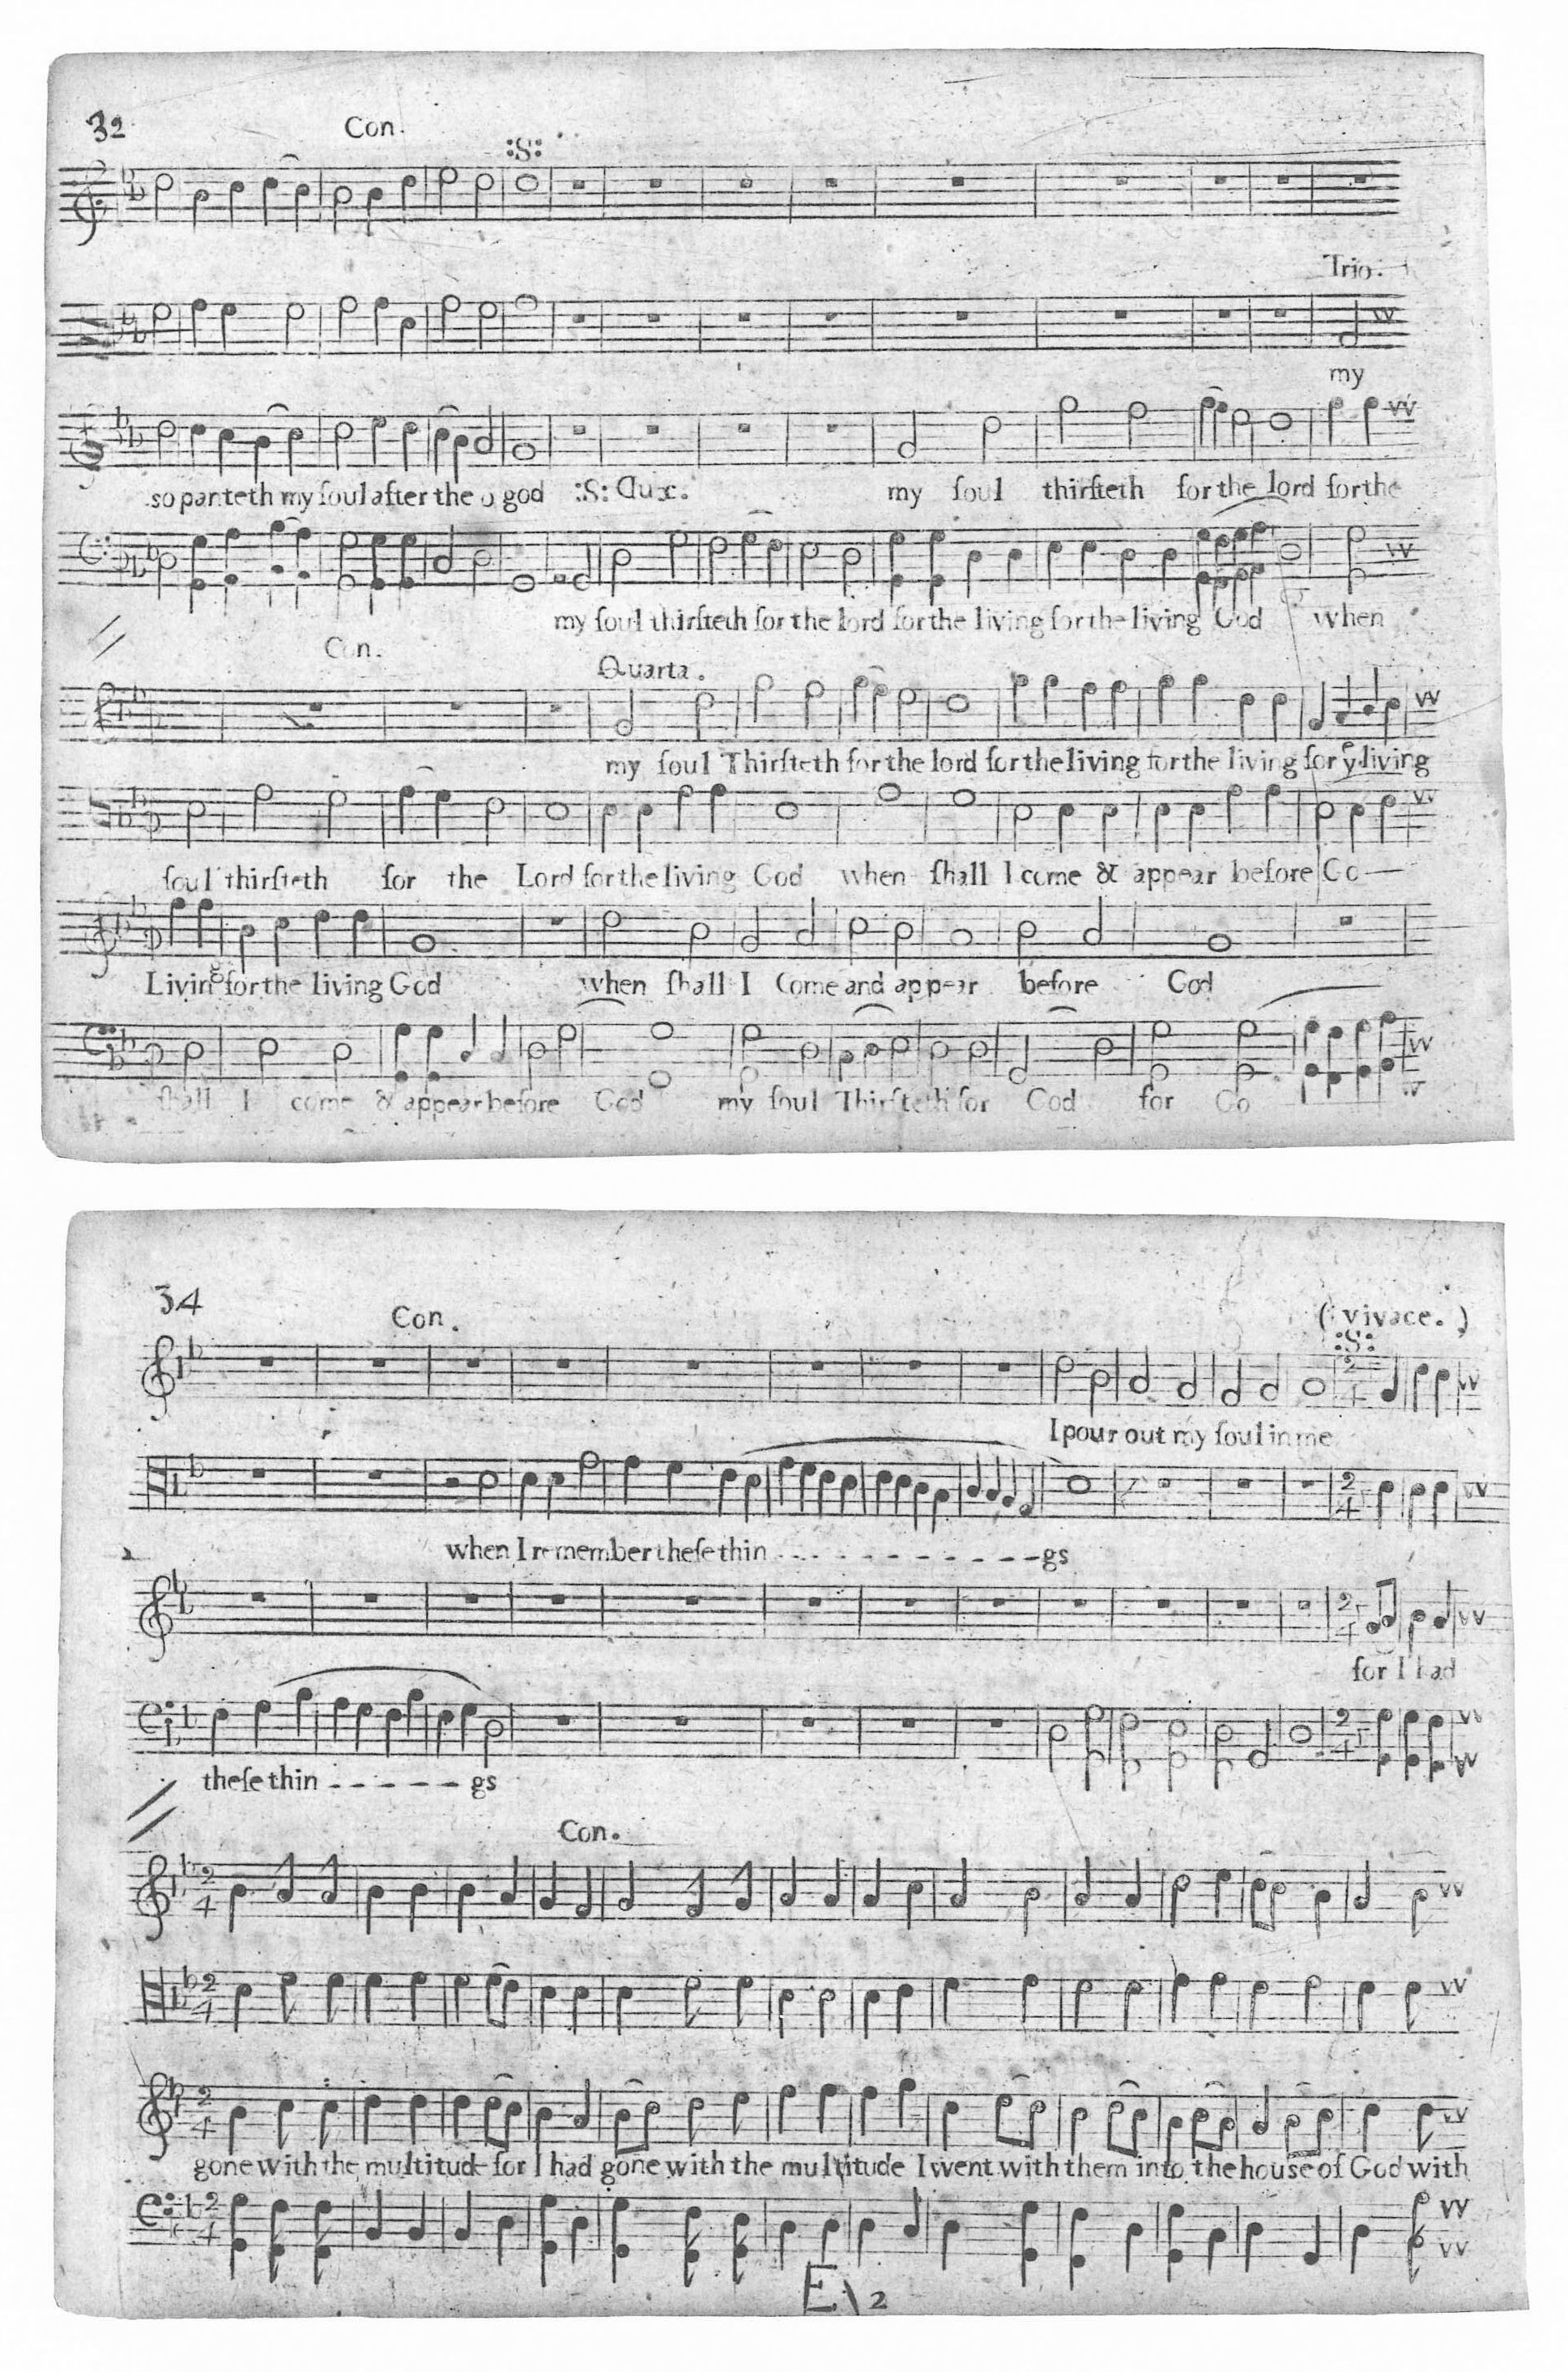 32
Con.
:S:
Trio.
my
so panteth my ſoul after the o god :S: Dux. my ſoul thirſteth for the lord for the
my ſoul thirſteth for the lord for the living for the living God when
Con.
Quarta.
my ſoul Thirſteth for the lord for the living for the living for yᵉ living
ſoul thirſteth for the Lord for the living God when ſhall I come & appear before Go—
Living for the living God when ſhall I Come and appear before God
ſhall I come & appear before God my ſoul Thirſteth for God for Go
34
Con.
(vivace.)
:S:
2 4
I pour out my ſoul in me
2 4
when I remember theſe thin - - - - - - - - - - gs
2 4
for I had
2 4
theſe thin - - - - - - gs
Con.
2 4
2 4
2 4
gone with the multitude for I had gone with the multitude I went with them into the house of God with
2 4
E 2